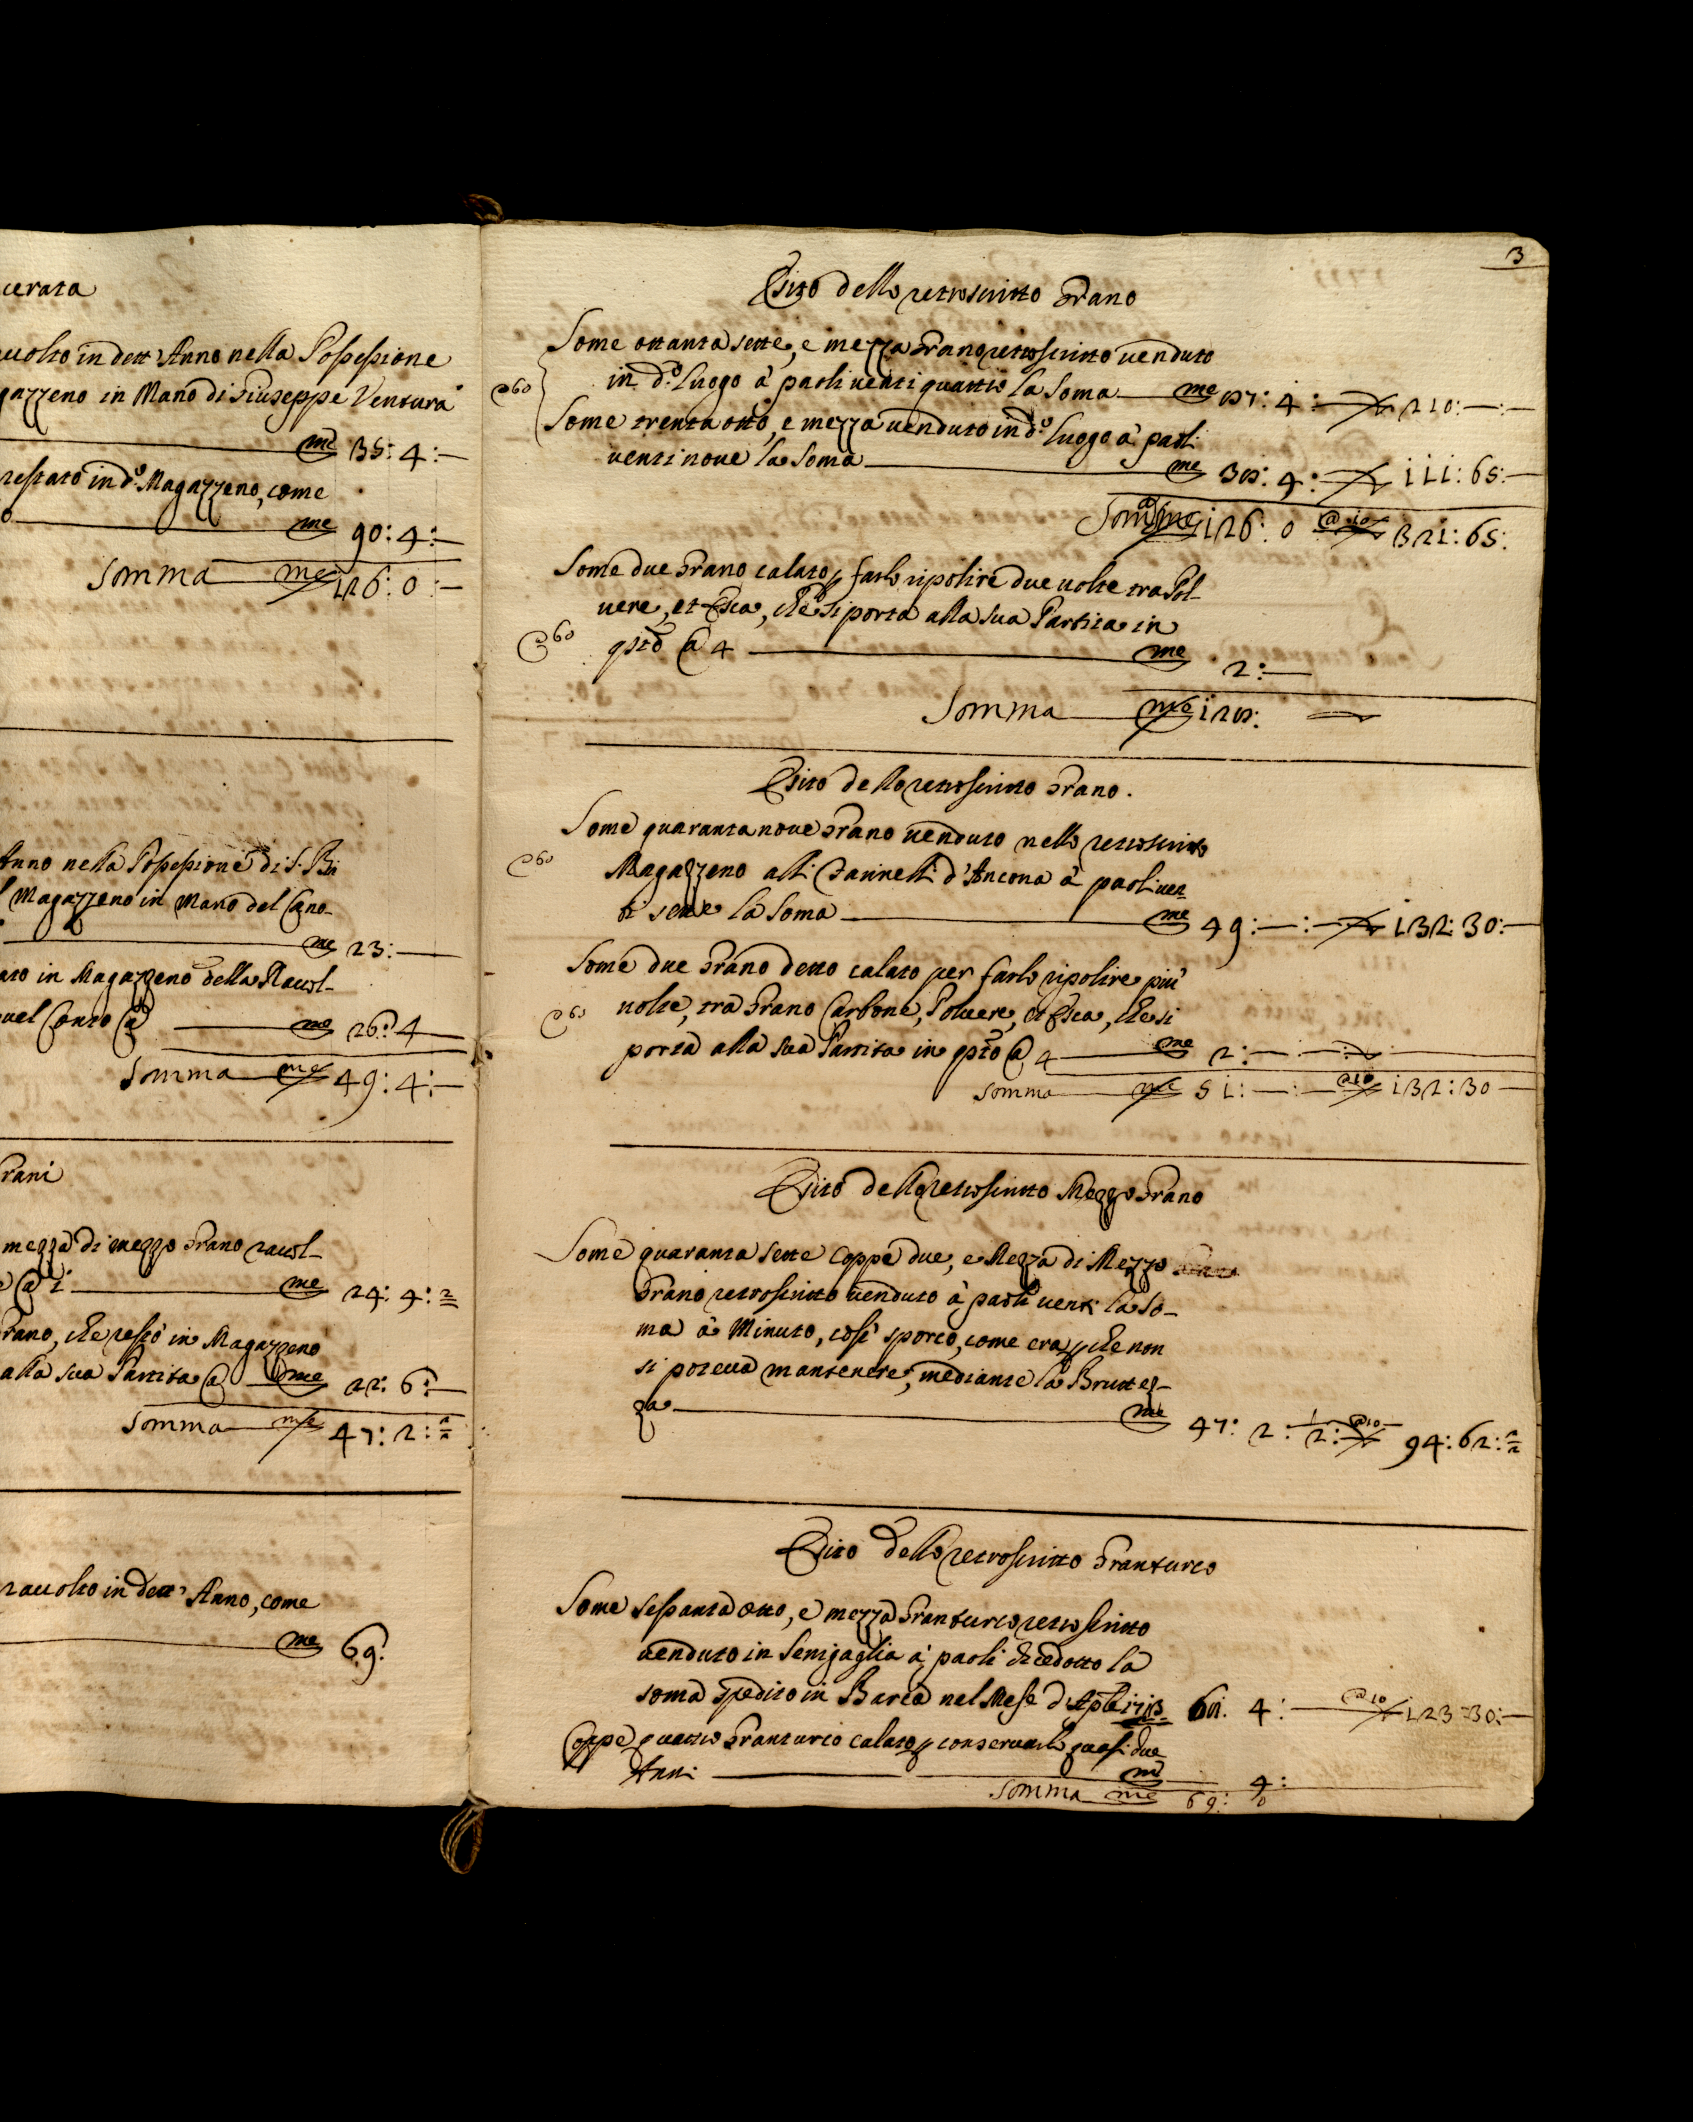 cerata
uolto in dett' Anno nella Possessione
gazzeno in Mano di Giuseppe Ventura
me 35: 4:—
restato in d.º Magazzeno, come
me 90: 4:—
Somma me 126: 0:—
Anno nella Possessione di S. Bi
l Magazzeno in Mano del Cano-
me 23:—
ato in Magazzeno della Raccol-
uel Conto @ me 26: 4
Somma me 49: 4:—
rani
mezza di mezzo Grano racol-
@ 1 me 24: 4: 2
rano, che restò in Magazzeno
alla sua Partita @ me 22: 6:—
Somma me 47: 2: ½
raccolto in dett' Anno, come
me 69:
3
Esito dello retroscritto Grano
Some ottanta sette, e mezza Grano retroscritto uenduto
@60 in d.º Luogo à paoli uenti quattro la Soma me 87: 4:— 210:—:—
Some trenta otto, e mezza uenduto in d.º Luogo à paoli
uenti noue la Soma me 38: 4:— 111: 65:—
Somma me 126: 0 @10 321: 65:
Some due Grano calato p farlo ripolire due uolte tra Pol-
uere, et Esca, che si porta alla sua Partita in
@60 qsto @ 4 me 2:—
Somma me 128:
Esito dello retroscritto Grano.
Some quaranta noue Grano uenduto nello retroscritto
@60 Magazzeno alli Giannelli d'Ancona à paoli uen
ti sette la Soma me 49:—:— 132: 30:—
Some due Grano detto calato per farlo ripolire più
@60 uolte, tra Grano Carbone, Poluere, et Esca, che si
porta alla sua Partita in qsto @ 4 me 2:—
Somma me 51:—:— @10 132: 30—
Esito dello retroscritto Mezzo Grano
Some quaranta sette coppe due, e Mezza di Mezzo
Grano retroscritto uenduto à paoli uenti la So-
ma à Minuto, così sporco, come era p che non
si poteua mantenere, mediante la Bruttez-
za me 47: 2: ½: @10 94: 62: ½
Esito dello retroscritto Granturco
Some sessanta otto, e mezza Granturco retroscritto
uenduto in Senigaglia à paoli diecedotto la
soma spedito in Barca nel Mese d'Aple 1713 68: 4:— @10 123: 30:—
Coppe quattro Granturco calato p conseruarlo quasi due
Anni me 4:
Somma me 69: 0